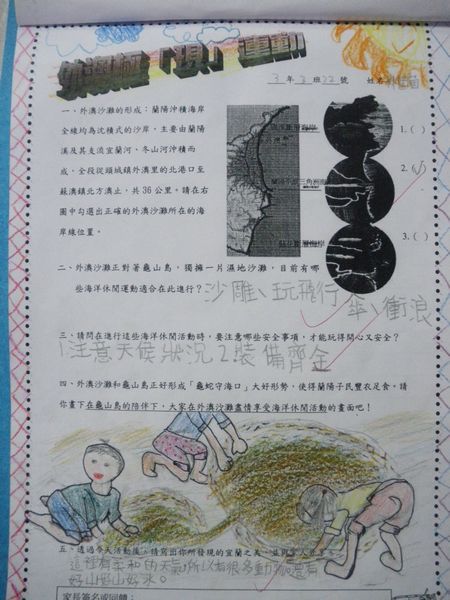 外澳極「現」運動!!
3年2班22號 姓名
一、外澳沙灘的形成:蘭陽沖積海岸
全線均為沈積式的沙岸,主要由蘭陽
溪及其支流宜蘭河、冬山河沖積而
成,全段從頭城鎮外澳里的北港口至
蘇澳鎮北方澳止,共36公里。請在右
圖中勾選出正確的外澳沙灘所在的海
岸線位置。
1.( )
2.(✓)
3.( )
二、外澳沙灘正對著龜山島,獨擁一片濕地沙灘,目前有哪
些海洋休閒運動適合在此進行?沙雕、玩飛行
傘、衝浪
三、請問在進行這些海洋休閒活動時,要注意哪些安全事項,才能玩得開心又安全?
1注意天候狀況2裝備齊全
四、外澳沙灘和龜山島正好形成「龜蛇守海口」大好形勢,使得蘭陽子民豐衣足食,請
你畫下在龜山島的陪伴下,大家在外澳沙灘盡情享受海洋休閒活動的畫面吧!
五、透過今天活動後,請寫出你所發現的宜蘭之美,並與家人分享。
這裡有柔和的天氣所以有很多動物還有
好山好水。
家長簽名或回饋: